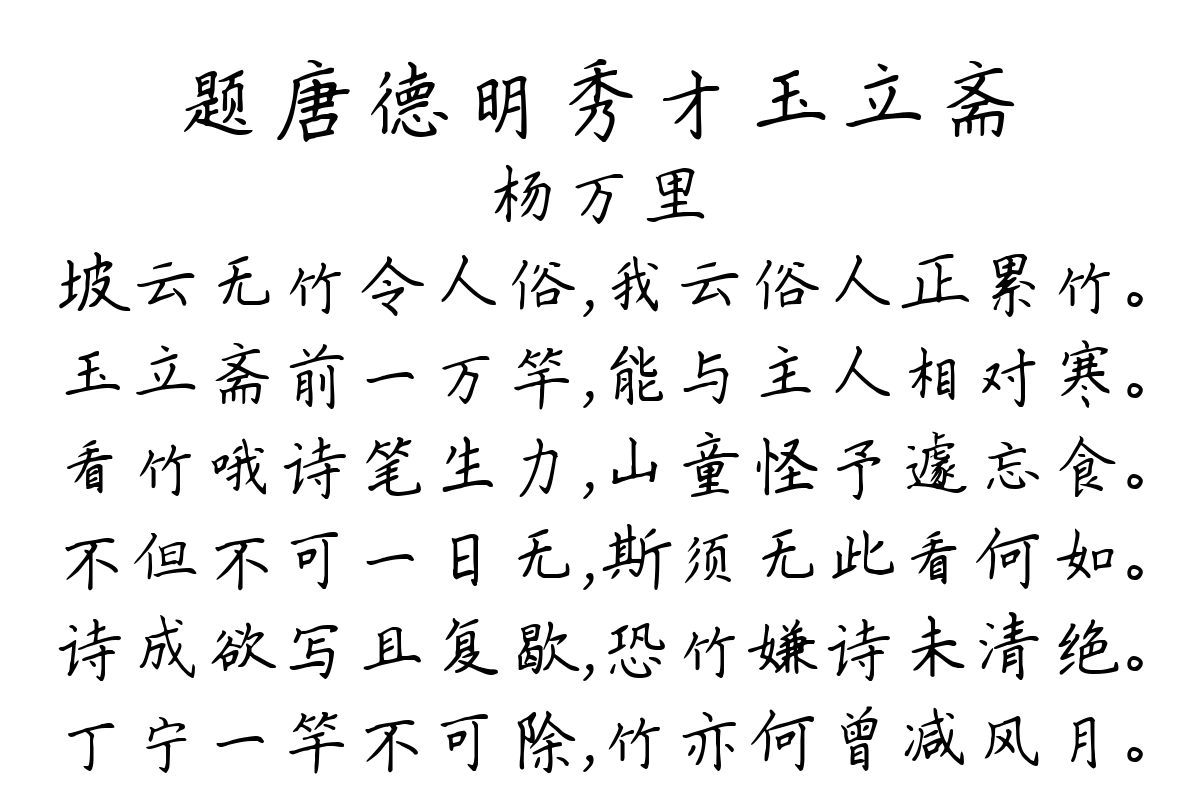 题唐德明秀才玉立斋
杨万里
坡云无竹令人俗,我云俗人正累竹。
玉立斋前一万竿,能与主人相对寒。
看竹哦诗笔生力,山童怪予遽忘食。
不但不可一日无,斯须无此看何如。
诗成欲写且复歇,恐竹嫌诗未清绝。
丁宁一竿不可除,竹亦何曾减风月。